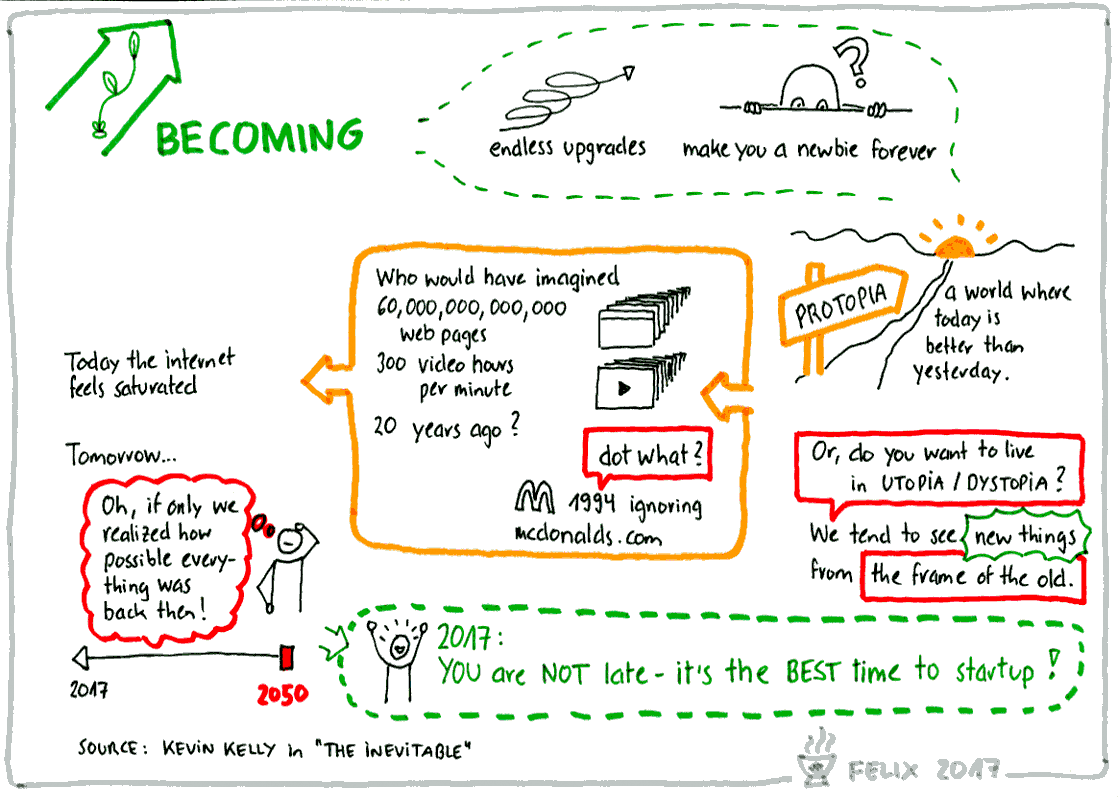 BECOMING
endless upgrades
make you a newbie forever
PROTOPIA
a world where
today is
better than
yesterday.
Or, do you want to live
in UTOPIA / DYSTOPIA?
We tend to see new things
from the frame of the old.
Who would have imagined
60,000,000,000,000
web pages
300 video hours
per minute
20 years ago?
dot what?
1994 ignoring
mcdonalds.com
Today the internet
feels saturated
Tomorrow...
Oh, if only we
realized how
possible every-
thing was
back then!
2017
2050
2017:
YOU are NOT late - it's the BEST time to startup!
SOURCE: KEVIN KELLY in "THE INEVITABLE"
FELIX 2017